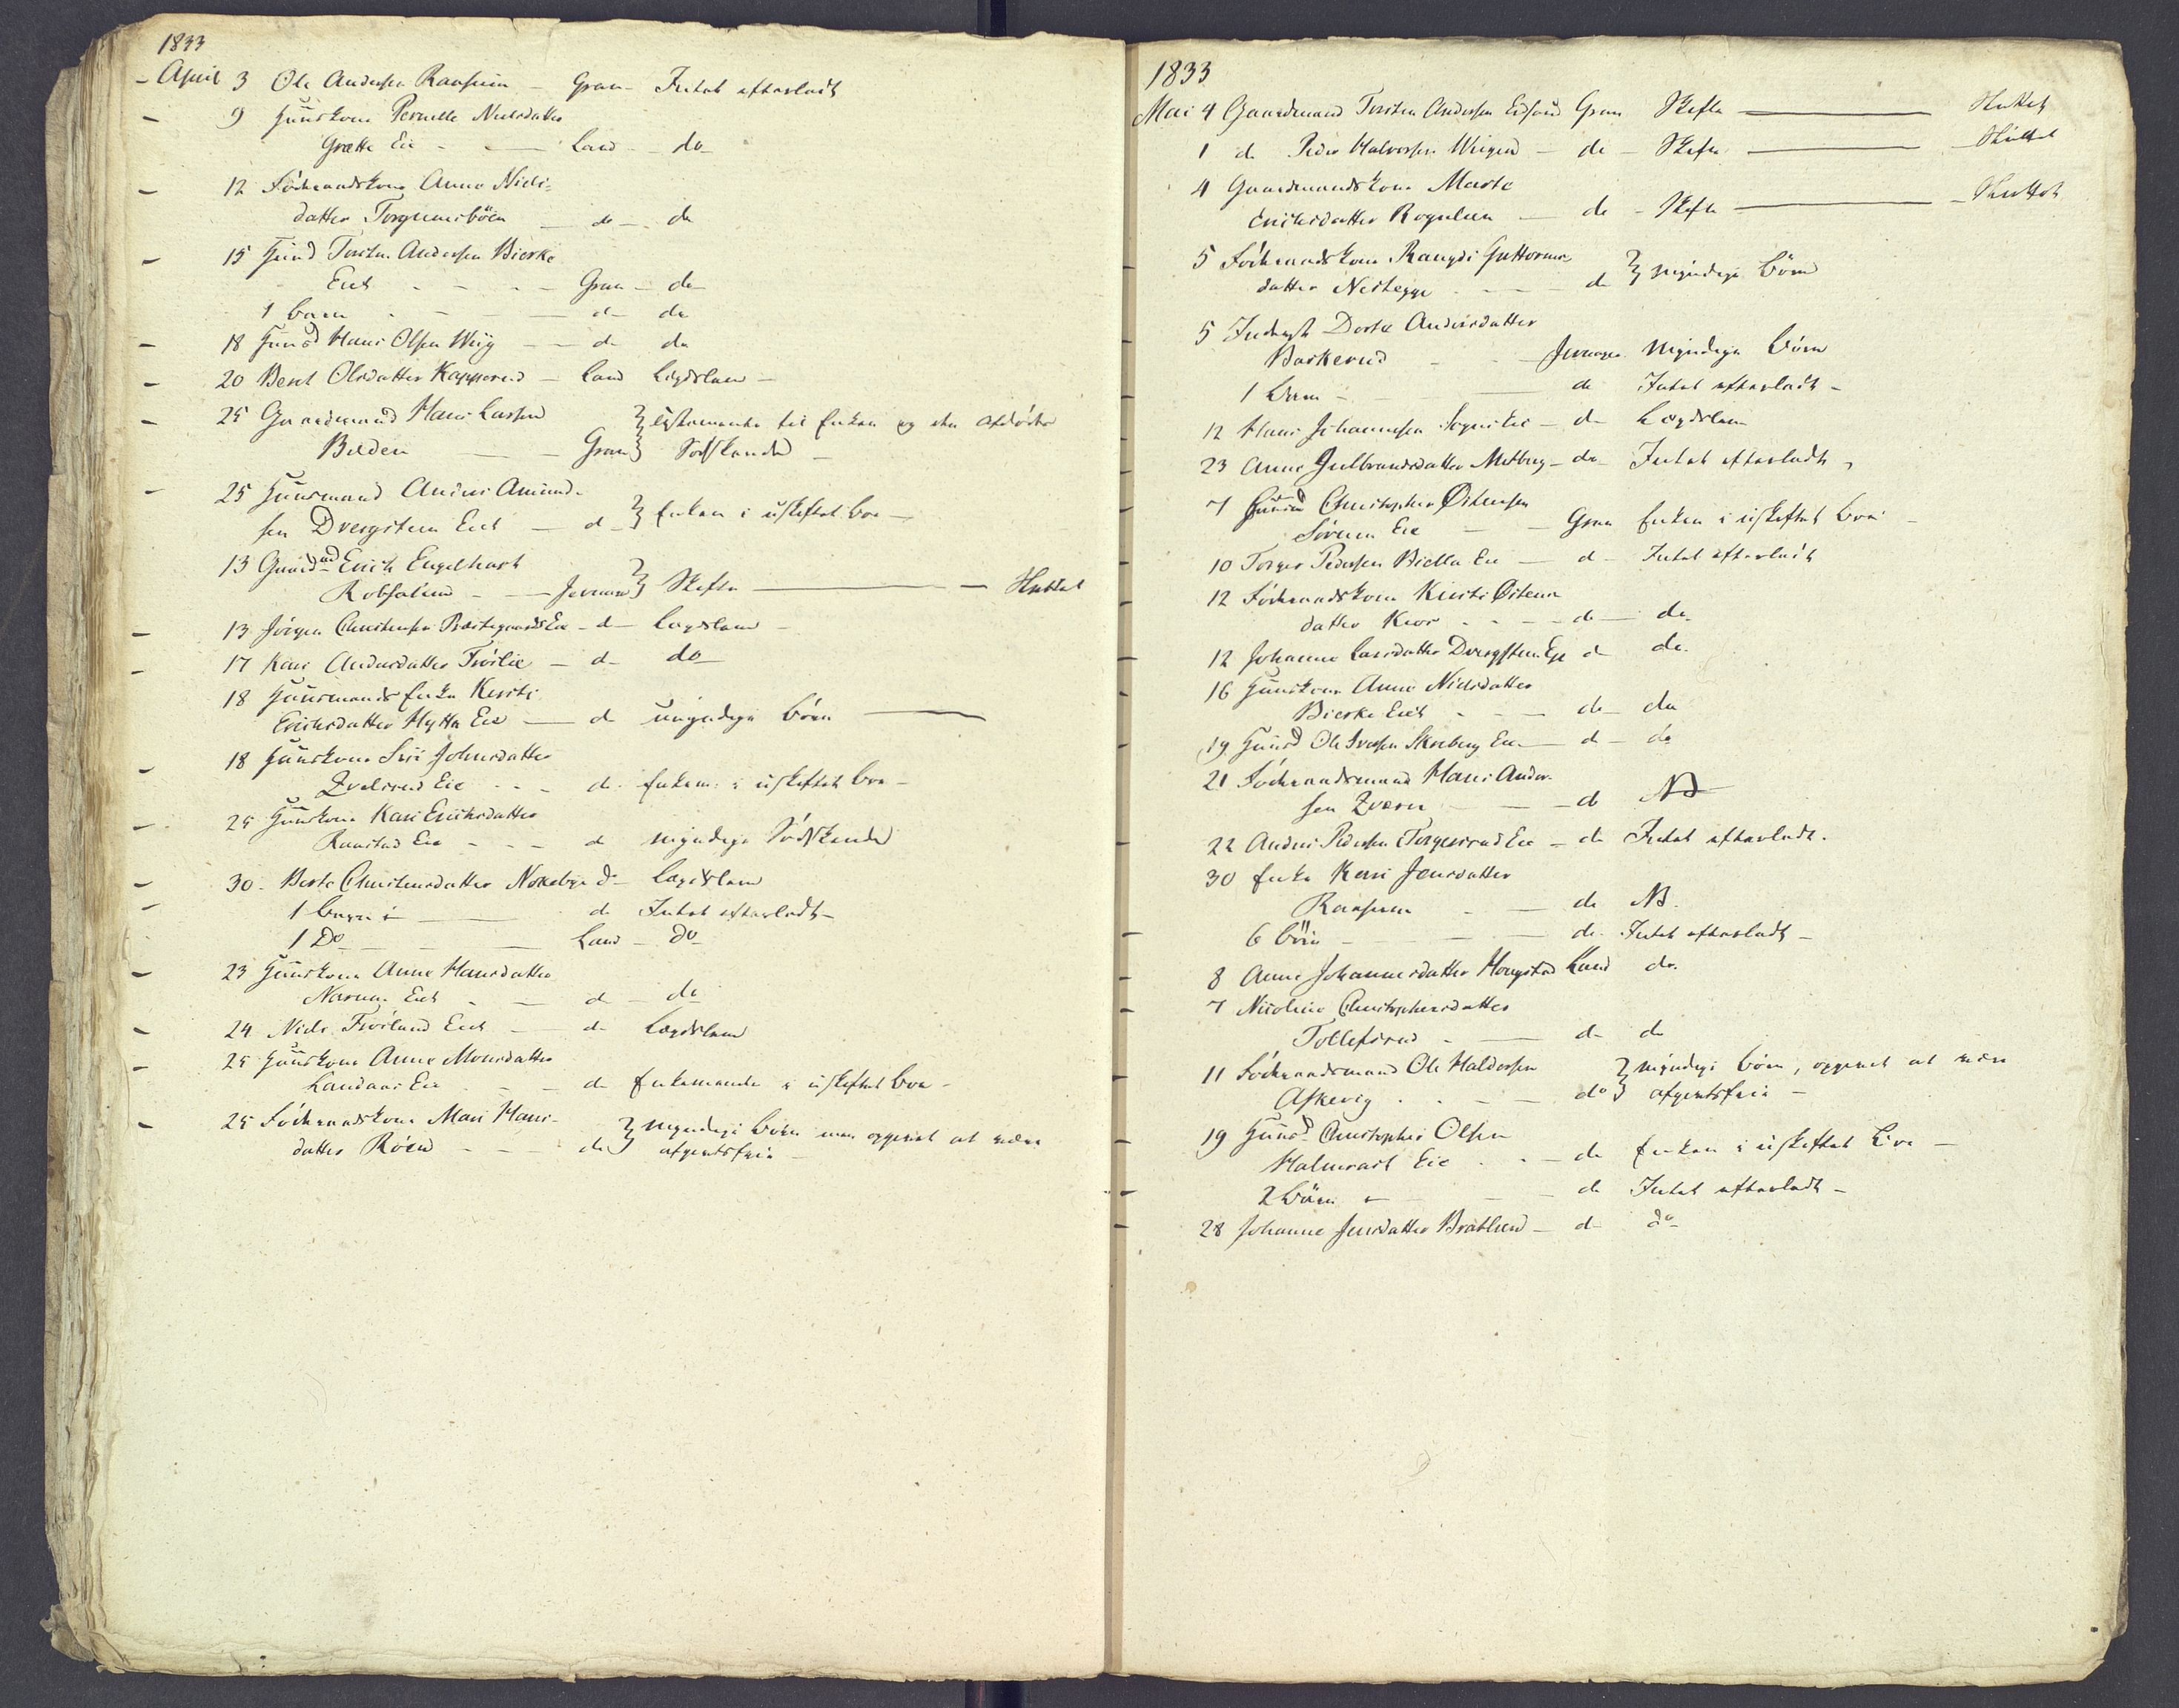 1833
April 3 Ole Andersen Raasum - Gran - Intet efterladt
9 Huuskone Pernelle Nielsdatter
Grette Eie - Land - do
12 Föderaadskone Anne Niels-
datter Torgunsböen - do - do
15 Huusmd Torsten Andersen Bierke
Eiet - Gran - do
1 barn - do do
18 Huusmd Hans Olsen Wiig - do do
20 Berit Olsdatter Kapperud - Land Lægdslem -
25 Gaardmand Hans Larsen } testamente til Enken og den afdödes
Bilden - Gran } Södskende -
25 Huusmand Anders Amund-
sen Dvergsteen Eiet - do } Enken i uskiftet boe -
13 Gaardmd Erich Engelhart
Robsahm - Jevnager } Skifte - Sluttet
13 Jörgen Christensen Præstegaards Eie - do - Lægdslem -
17 Kari Andersdatter Fröslie - do do
18 Huusmands Enke Kersti
Erichsdatter Hytta Eie - do umyndige börn
18 Huuskone Siri Johnsdatter
Zvelsrud Eie - do Enkem: i uskiftet boe -
25 Huuskone Kari Erichsdatter
Raastad Eie - do myndige Södskende
30 - Berte Christensdatter Nokleby do - Lægdslem
1 barn - do Intet efterladt -
1 Do - Land - do
23 Huuskone Anne Hansdatter
Narum Eiet - do - do
24 Niels Fröslund Eiet - do Lægdslem
25 Huuskone Anne Monsdatter
Landaas Eie - do Enkemanden i uskiftet boe -
25 Föderaadskone Mari Hans- } myndige börn men opgivet at være
datter Röen - do } afgivtsfrie -
1833
Mai 4 Gaardmand Torsten Andersen Gran Skifte - Sluttet
1 do Peder Halvorsen Wien - do - Skifte - Sluttet
4 Gaardmandskone Marte
Erichsdatter Rognlien - do - Skifte - Sluttet
5 Föderaadskone Rangdi Guttorms
datter Nestegge - do } myndige börn
5 Inderst Dorte Andersdatter
Backerud - Jevnager myndige börn
1 barn - do Intet efterladt -
12 Hans Johannesen Sogns Eie - do - Lægdslem
23 Anne Gulbrandsdatter - do - Intet efterladt
7 Huusmd Christopher Östensen
Sörum Eie - Gran Enken i uskiftet boe -
10 Torger Pedersen Biella Eie - do - Intet efterladt
12 Föderaadskone Kirsti Östens
datter - do - do
12 Johanne Larsdatter Dvergsten Eje do do.
16 Huuskone Anne Nielsdatter
Bierke Eiet - do - do
19 Huusmd Ole Iversen Skiaberg Eie - do - do
21 Föderaadsmand Hans Ander-
sen Zværn - do NB
22 Anders Pedersen Torgersrud Eie - do Intet efterladt.
30 Enke Kari Jensdatter
Raasum - do NB.
6 börn - do. Intet efterladt -
8 Anne Johannesdatter Haugstad Land do.
7 Nicoline Christophersdatter
Tollefsrud - do do
11 Föderaadsmand Ole Haldorsen } myndige börn, opgivet at være
Askevig - do } afgivtsfrie -
19 Huusmd Christopher Olsen
Halmrast Eie - do Enken i uskiftet boe -
2 börn - do Intet efterladt -
28 Johanne Jensdatter Bratlund - do do